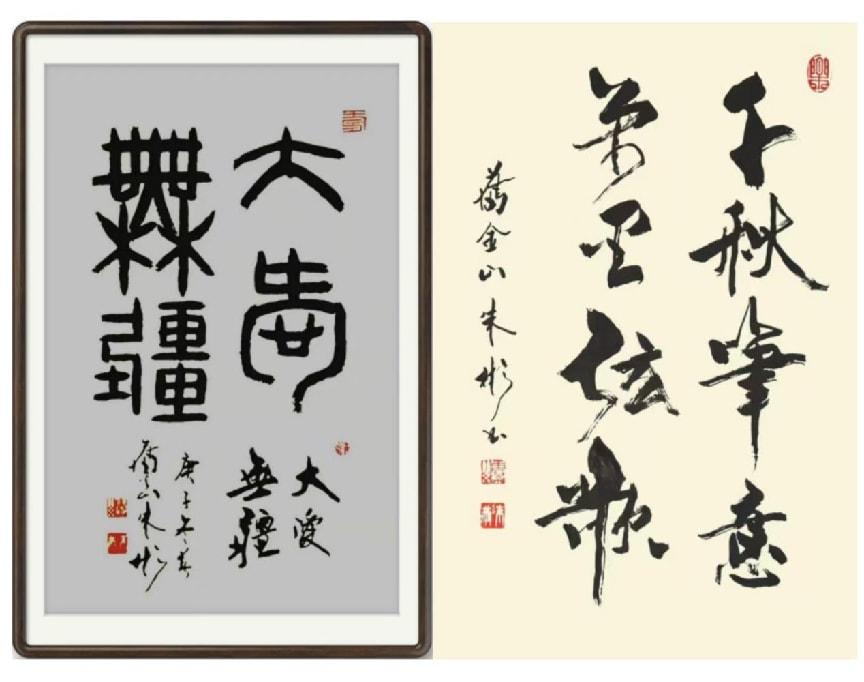 大愛
無疆
大愛
無疆
庚子冬
山朱彬
千秋筆意
萬里弦歌
舊金山朱彬书